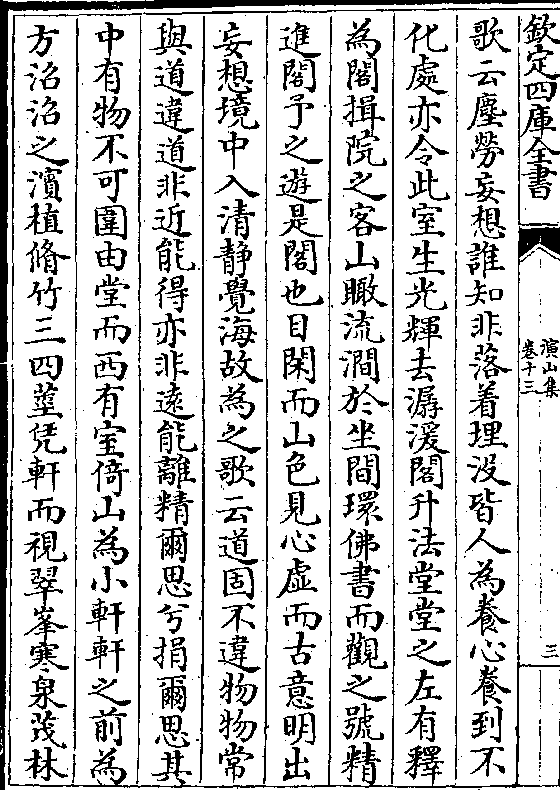 欽定四庫全書
演山集
卷十三
三
歌云塵勞妄想誰知非落着埋沒皆人為養心養到不
化處亦令此室生光輝去潺湲閣升法堂堂之左有釋
為閣揖院之客山瞰流澗於坐間環佛書而觀之號精
進閣予之遊是閣也目閑而山色見心虛而古意明出
妄想境中入清静覺海故為之歌云道固不違物物常
與道違道非近能得亦非遠能離精爾思兮捐爾思其
中有物不可圍由堂而西有室倚山為小軒軒之前為
方沼沼之濱植脩竹三四莖凭軒而視翠峯寒泉茂林